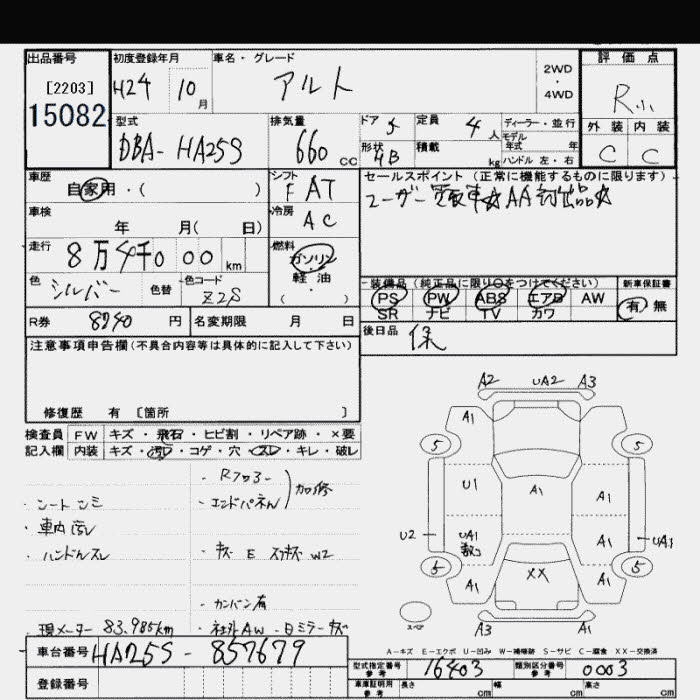 出品番号
[2203]
15082
初度登録年月
H24 10月
車名・グレード
アルト
2WD
・
4WD
評価点
R小
外装 内装
C C
型式
DBA-HA25S
排気量
660 cc
ドア 5
形状 HB
定員 4人
積載 kg
ディーラー・並行
モデル
年式 年
ハンドル 左・右
車歴
自家用・( )
シフト
F AT
セールスポイント(正常に機能するものに限ります)
ユーザー買取車☆AA初出品☆
車検
年 月( 日)
冷房
AC
走行
8万4千0 00 km
燃料
ガソリン
軽油
・
( )
色
シルバー
色替
色コード
Z2S
装備品(純正品に限り○をつけてください)
PS PW ABS エアB AW
SR ナビ TV カワ
新車保証書
有・無
R券 8240円
名変期限 月 日
後日品
保
注意事項申告欄(不具合内容等は具体的に記入して下さい)
修復歴 有 〔箇所 〕
検査員 FW キズ・飛石・ヒビ割・リペア跡・×要
記入欄 内装 キズ・汚レ・コゲ・穴・スレ・キレ・破レ
・Rフロアー
・エンドパネル
加修
・シートシミ
・車内汚レ
・ハンドルスレ
・キズ E スリキズ W2
・カンバン有
・現メーター 83,985km
・社外AW ・Bミラーキズ
A2 UA2 A3
A1
5 5
U1 A1 A1
U2 UA1 A1 UA1
5 5
A1 XX A1
スペア
A3 A1
A-キズ E-エクボ U-凹み W-補修跡 S-サビ C-腐食 XX-交換済
車台番号 HA25S-857679
型式指定番号
参考
16403
類別区分番号
参考
0003
登録番号
車庫証明用
参考
長さ cm 幅 cm 高さ cm